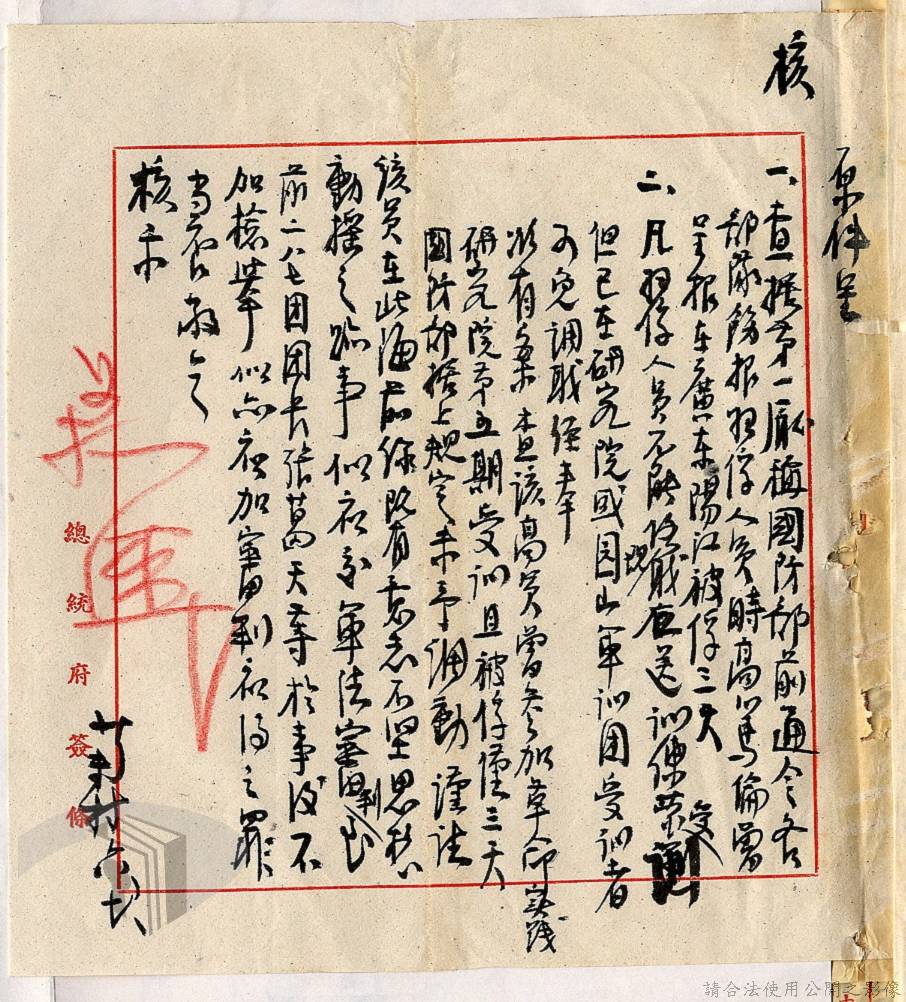 核
原件呈
一、查據第一廳梅國防部前通令各
部隊飭報被俘人員時高篤倫曾
呈報在廣東陽江被俘三天
二、凡被俘人員不論現任職應送訓集受訓
但已在研究院或圓山軍訓團受訓者
可免調職經奉
准有案查該高員曾參加革命實踐
研究院第五期受訓且被俘僅三天
國防部據上規定未予調動謹註
該員在此海前線既有意志不堅思想
動搖之跡事似應交軍法審判
前二八七團團長張萬天等於事後不
加檢舉似亦應加審判應得之罪
當否敬乞
核示
總統府簽條
請合法使用公開之影像